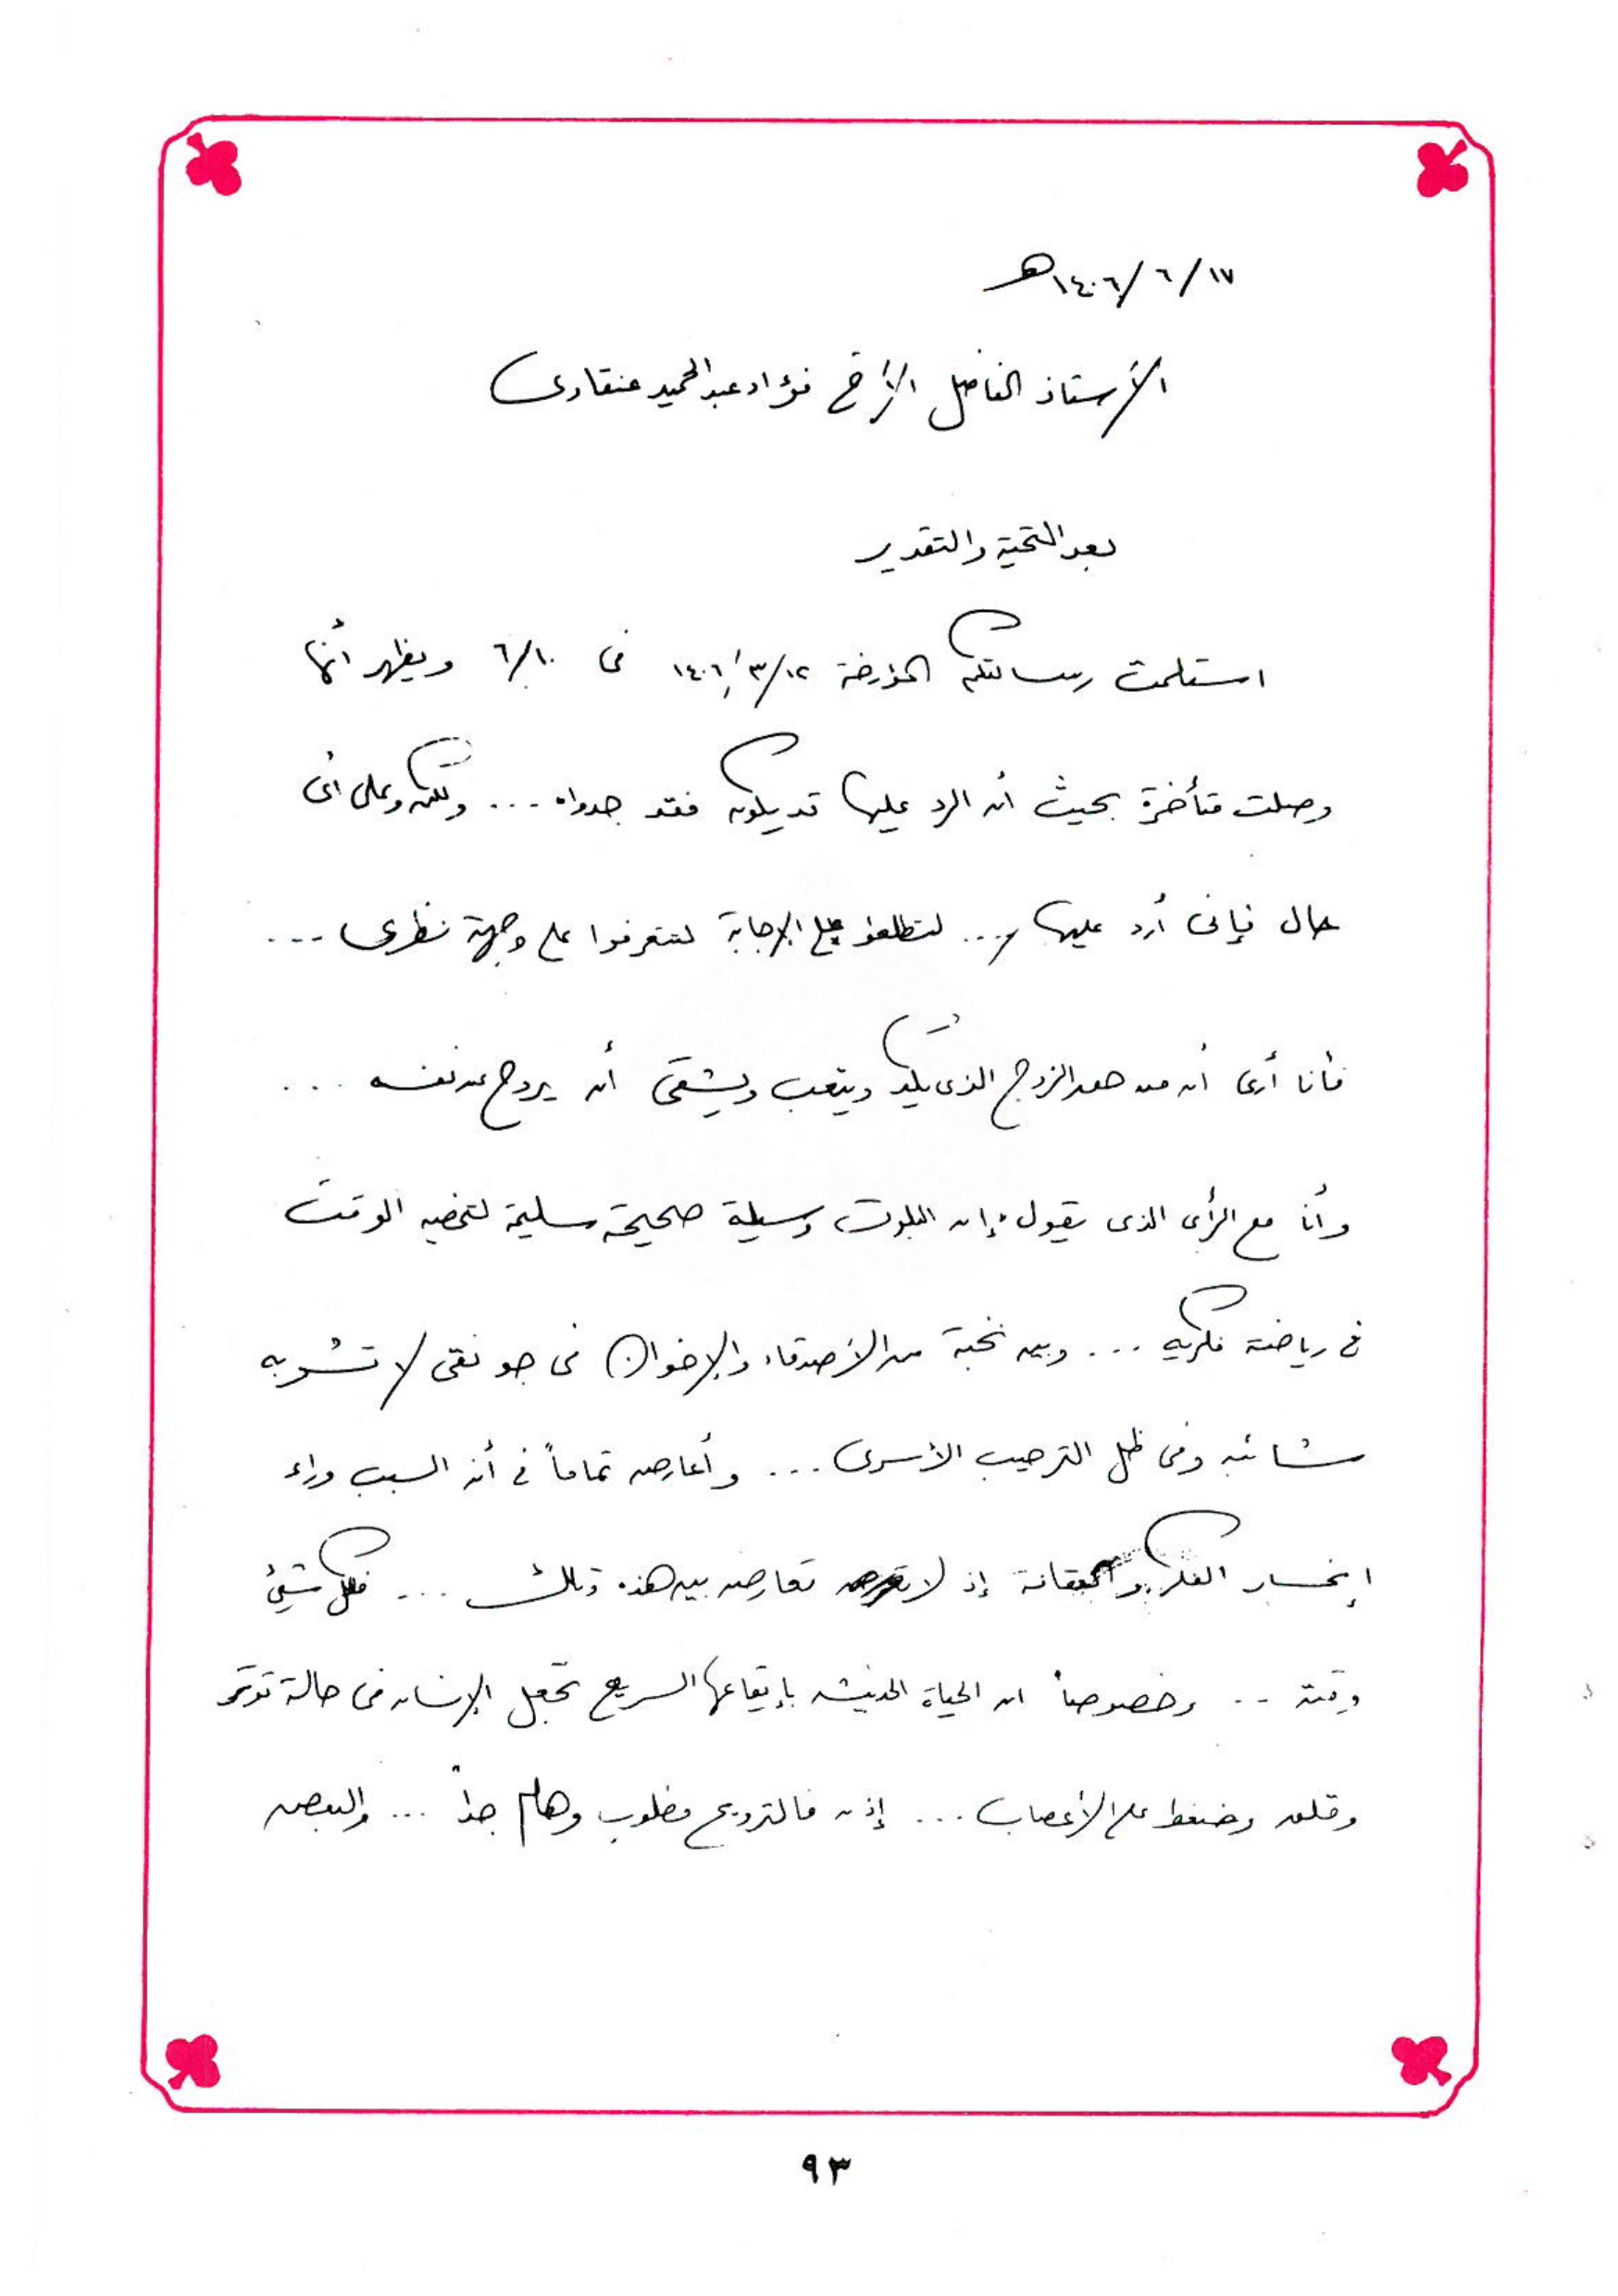 ١٧/٦/١٤٠٦هـ
الأستاذ الفاضل الأخ فؤاد عبدالحميد عنقاوى
بعد التحية والتقدير
استلمت رسالتكم المؤرخة ١٤٠٦/٣/١٢ فى ٦/١٠ ويظهر أنها
وصلت متأخرة بحيث أن الرد عليها قد يكون فقد جدواه ... ولكن وعلى أى
حال فإنى أرد عليها ... لتطلعوا على الإجابة لتتعرفوا على وجهة نظرى ...
فأنا أرى أن من حق الزوج الذى يكد ويتعب ويشقى أن يروح عن نفسه ...
وأنا مع الرأى الذى يقول : إن البلوت وسيلة صحيحة سليمة لتمضية الوقت
فى رياضة فكرية ... وبين نخبة من الأصدقاء والإخوان فى جو نقى لا تشوبه
شائبه وفى ظل الترحيب الأسرى ... وأعارض تماماً فى أن السبب وراء
إنحسار الفكر والثقافة إذ لا تعارض بين هذه وتلك ... فلكل شيئ
وقته .. وخصوصاً ان الحياة الحديثه بإيقاعها السريع تجعل الإنسان فى حالة توتر
وقلق وضغط على الأعصاب ... إذن فالترويح مطلوب وهام جداً ... والبعض
٩٣